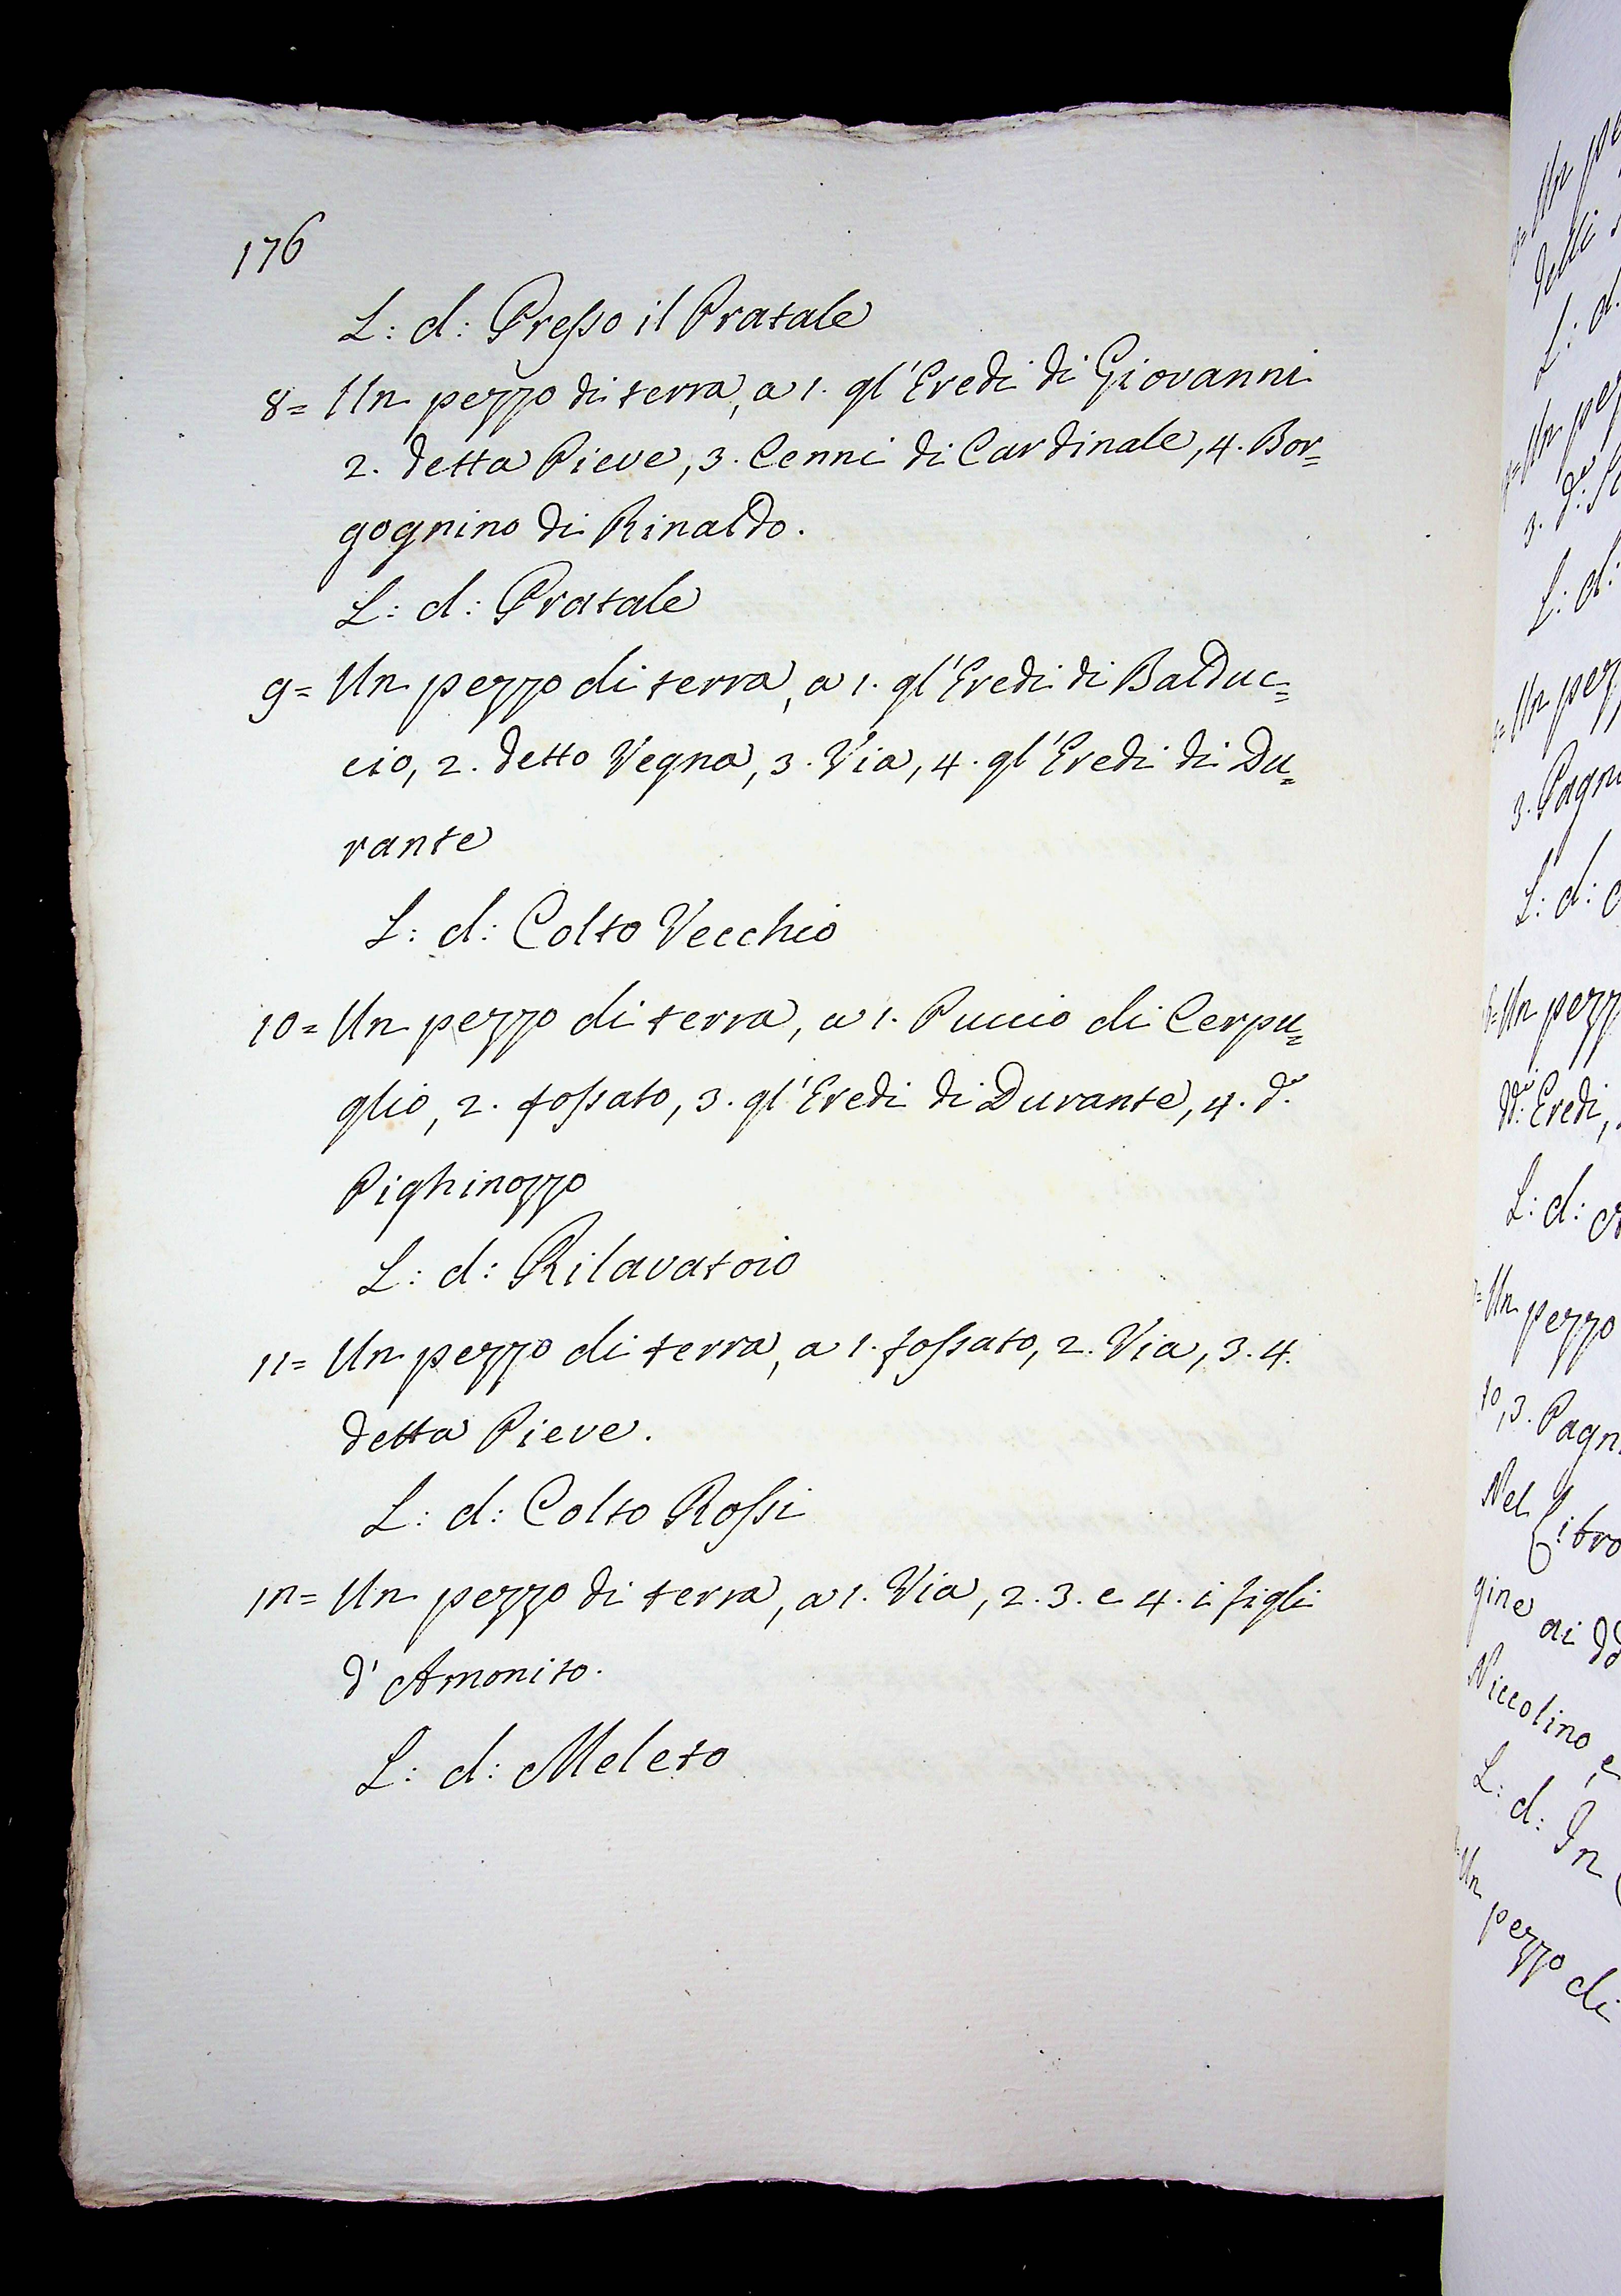 176
L: d: Presso il Pratale
8= Un pezzo di terra, a 1. gl'Eredi di Giovanni
2. detta Pieve, 3. Cenni di Cardinale, 4. Bor=
gognino di Rinaldo.
L: d: Pratale
9= Un pezzo di terra, a 1. gl'Eredi di Balduc=
cio, 2. detto Vegna, 3. Via, 4. gl'Eredi di Du=
rante
L: d: Colto Vecchio
10= Un pezzo di terra, a 1. Puccio di Cerpu=
glio, 2. fossato, 3. gl'Eredi di Durante, 4. d.°
Pighinozzo
L: d: Rilavatoio
11= Un pezzo di terra, a 1. fossato, 2. Via, 3. 4.
detta Pieve.
L: d: Colto Rossi
12= Un pezzo di terra, a 1. Via, 2. 3. e 4. i figli
d'Amonito.
L: d: Meleto
Un
delli
L: d.
Un pez
3. d.°
L: d:
Un pez
3. Pagni
L: d:
Un pezz
dd.i Eredi,
L: d:
Un pezzo
to, 3. Pagn
Nel Libro
gine ai dd
Niccolino, e
L: d: In
Un pezzo di